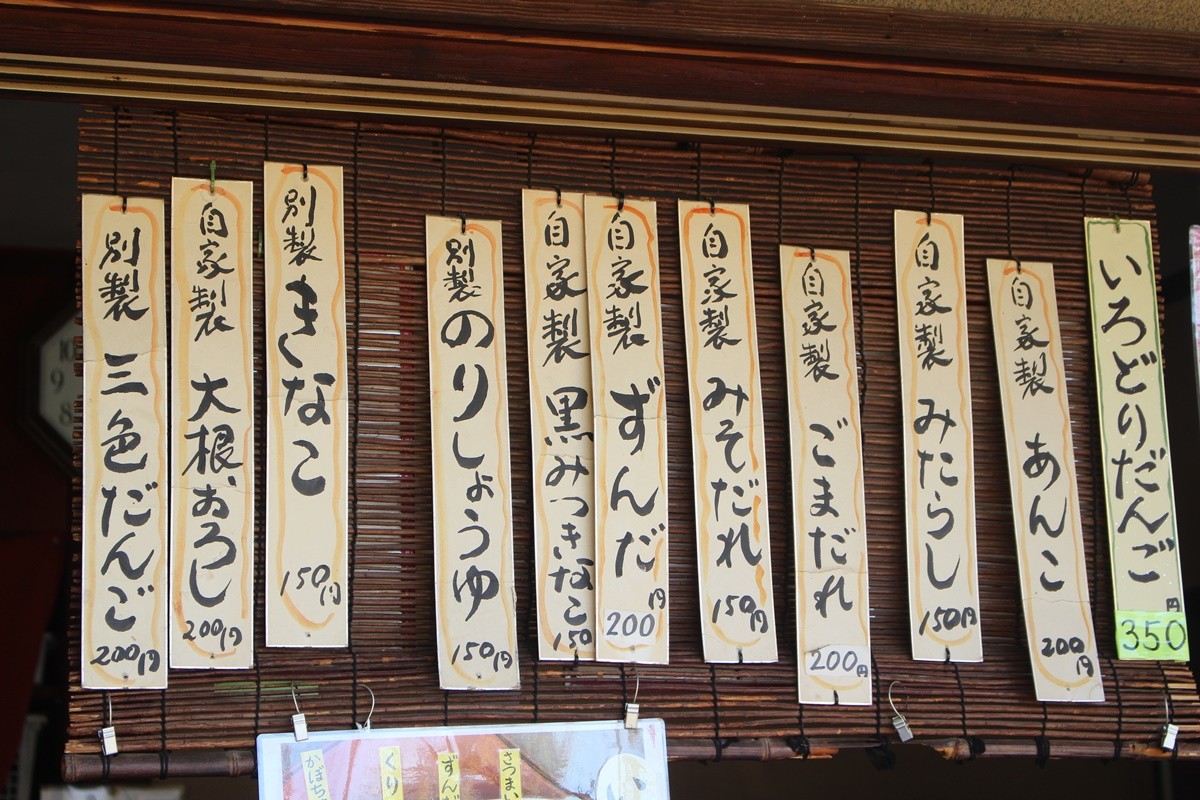 いろどりだんご
円
350
自家製 あんこ
200円
自家製 みたらし
150円
自家製 ごまだれ
200円
自家製 みそだれ
150円
自家製 ずんだ
円
200
自家製 黒みつきなこ
150
別製 のりしょうゆ
150円
別製 きなこ
150円
自家製 大根おろし
200円
別製 三色だんご
200円
さつまい
ずんだ
くり
かぼちゃ
10
9
8